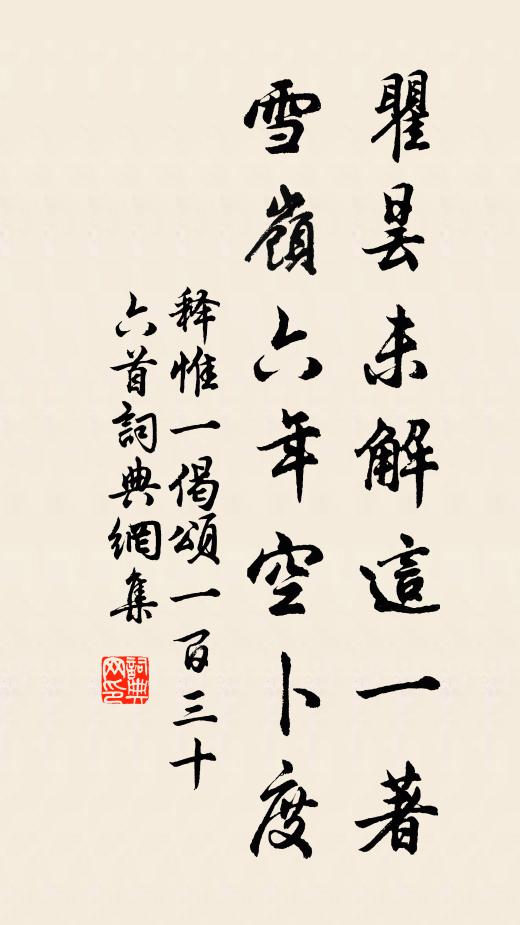 瞿曇未解這一著
雪嶺六年空卜度
释惟一偈頌一百三十
六首詞典網集
詞典网印